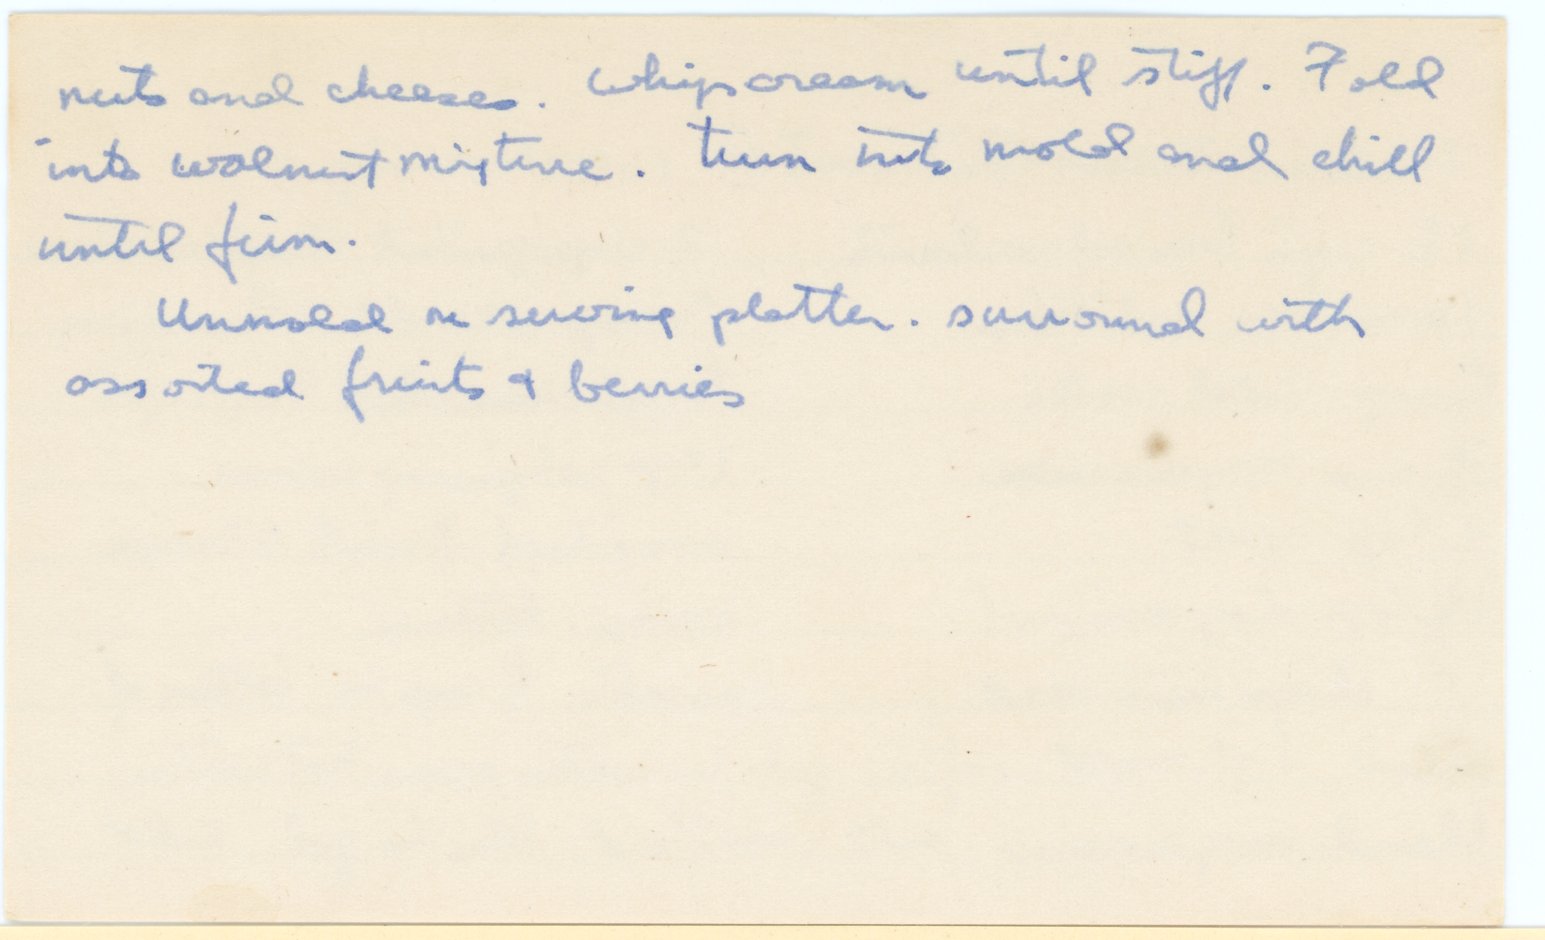 nuts and cheeses. Whip cream until stiff. Fold
into walnut mixture. Turn into mold and chill
until firm.
Unmold on serving platter. surround with
assorted fruits & berries